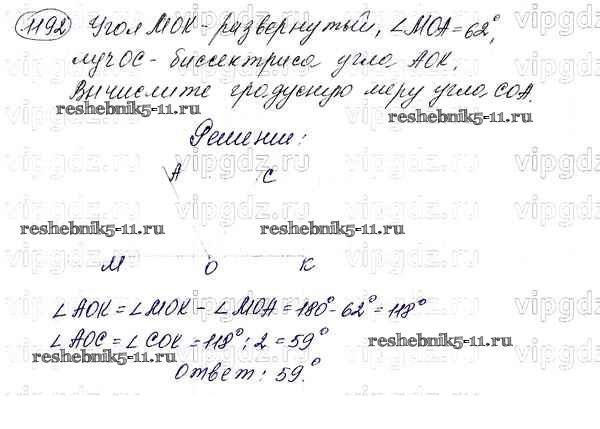 1192 Угол МОК - развернутый, ∠МОА = 62°,
луч ОС - биссектриса угла АОК.
Вычислите градусную меру угла СОА.
reshebnik5-11.ru reshebnik5-11.ru
Решение:
А С
reshebnik5-11.ru reshebnik5-11.ru
М О К
∠АОК = ∠МОК - ∠МОА = 180° - 62° = 118°
∠АОС = ∠СОК = 118° : 2 = 59°
reshebnik5-11.ru reshebnik5-11.ru
Ответ: 59°.
vipgdz.ru